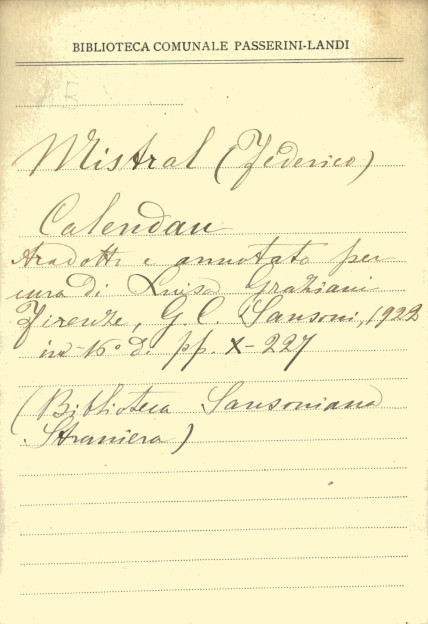 BIBLIOTECA COMUNALE PASSERINI-LANDI
Mistral (Federico)
Calendau
Tradotto e annotato per
cura di Luisa Graziani
Firenze, G. C. Sansoni, 1922
in-16° d. pp. X-227
(Biblioteca Sansoniana
Straniera)